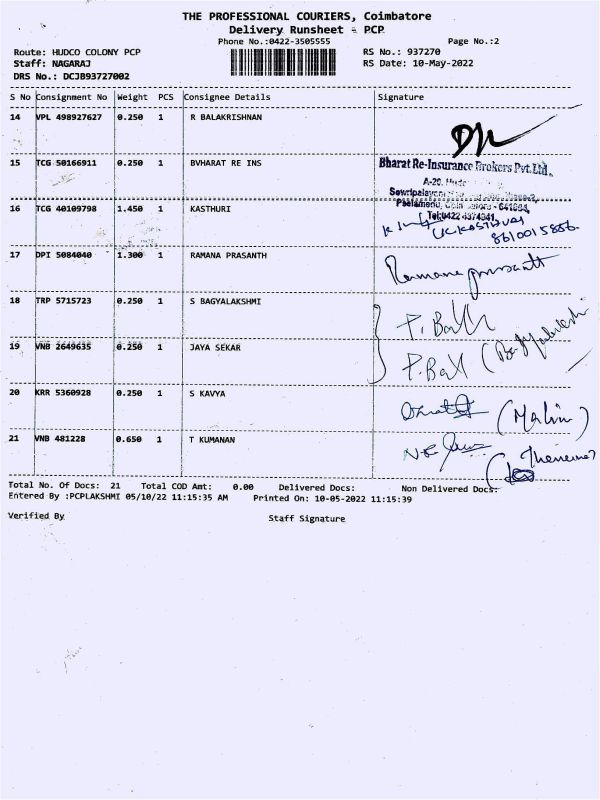 THE PROFESSIONAL COURIERS, Coimbatore
Delivery Runsheet - PCP
Phone No.:0422-3505555
Page No.:2
Route: HUDCO COLONY PCP
RS No.: 937270
Staff: NAGARAJ
RS Date: 10-May-2022
DRS No.: DCJB93727002
S No Consignment No Weight PCS Consignee Details Signature
14 VPL 498927627 0.250 1 R BALAKRISHNAN
15 TCG 50166911 0.250 1 BVHARAT RE INS
Bharat Re-Insurance Brokers Pvt.Ltd.
A-20,
16 TCG 40109798 1.450 1 KASTHURI
Tel:0422 4374941
8610015886
17 DPI 5084040 1.300 1 RAMANA PRASANTH
Ramana prasanth
18 TRP 5715723 0.250 1 S BAGYALAKSHMI
19 VNB 2649635 0.250 1 JAYA SEKAR
20 KRR 5360928 0.250 1 S KAVYA
(Malini)
21 VNB 481228 0.650 1 T KUMANAN
Total No. Of Docs: 21 Total COD Amt: 0.00 Delivered Docs: Non Delivered Docs:
Entered By :PCPLAKSHMI 05/10/22 11:15:35 AM Printed On: 10-05-2022 11:15:39
Verified By
Staff Signature